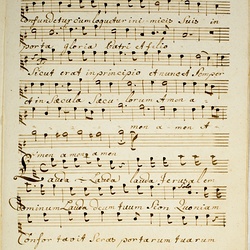 confundetur cum loquetur ini micis suis in
porta gloria Patri et filio
Sicut erat in principio et nunc et Semper
et in Sæcula Sæcu lorum Amen a
men a men A
men a men a men
Lauda Lauda lauda Jerusalem
Dominum Lauda deum tuum Sion Quoniam
Confor tavit Seras portarum tuarum